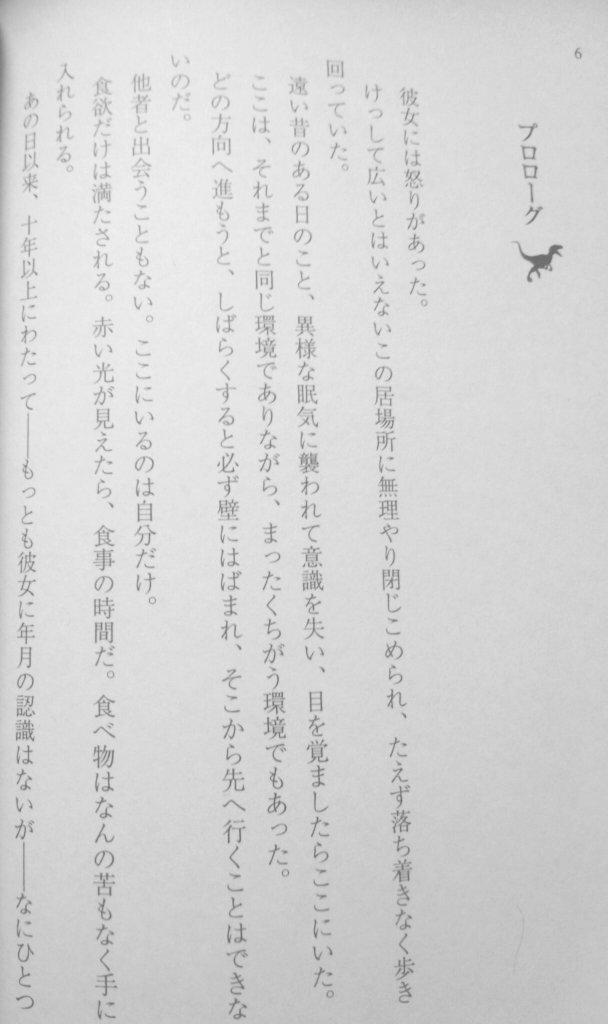 6
プロローグ
彼女には怒りがあった。
けっして広いとはいえないこの居場所に無理やり閉じこめられ、たえず落ち着きなく歩き
回っていた。
遠い昔のある日のこと、異様な眠気に襲われて意識を失い、目を覚ましたらここにいた。
ここは、それまでと同じ環境でありながら、まったくちがう環境でもあった。
どの方向へ進もうと、しばらくすると必ず壁にはばまれ、そこから先へ行くことはできな
いのだ。
他者と出会うこともない。ここにいるのは自分だけ。
食欲だけは満たされる。赤い光が見えたら、食事の時間だ。食べ物はなんの苦もなく手に
入れられる。
あの日以来、十年以上にわたって――もっとも彼女に年月の認識はないが――なにひとつ